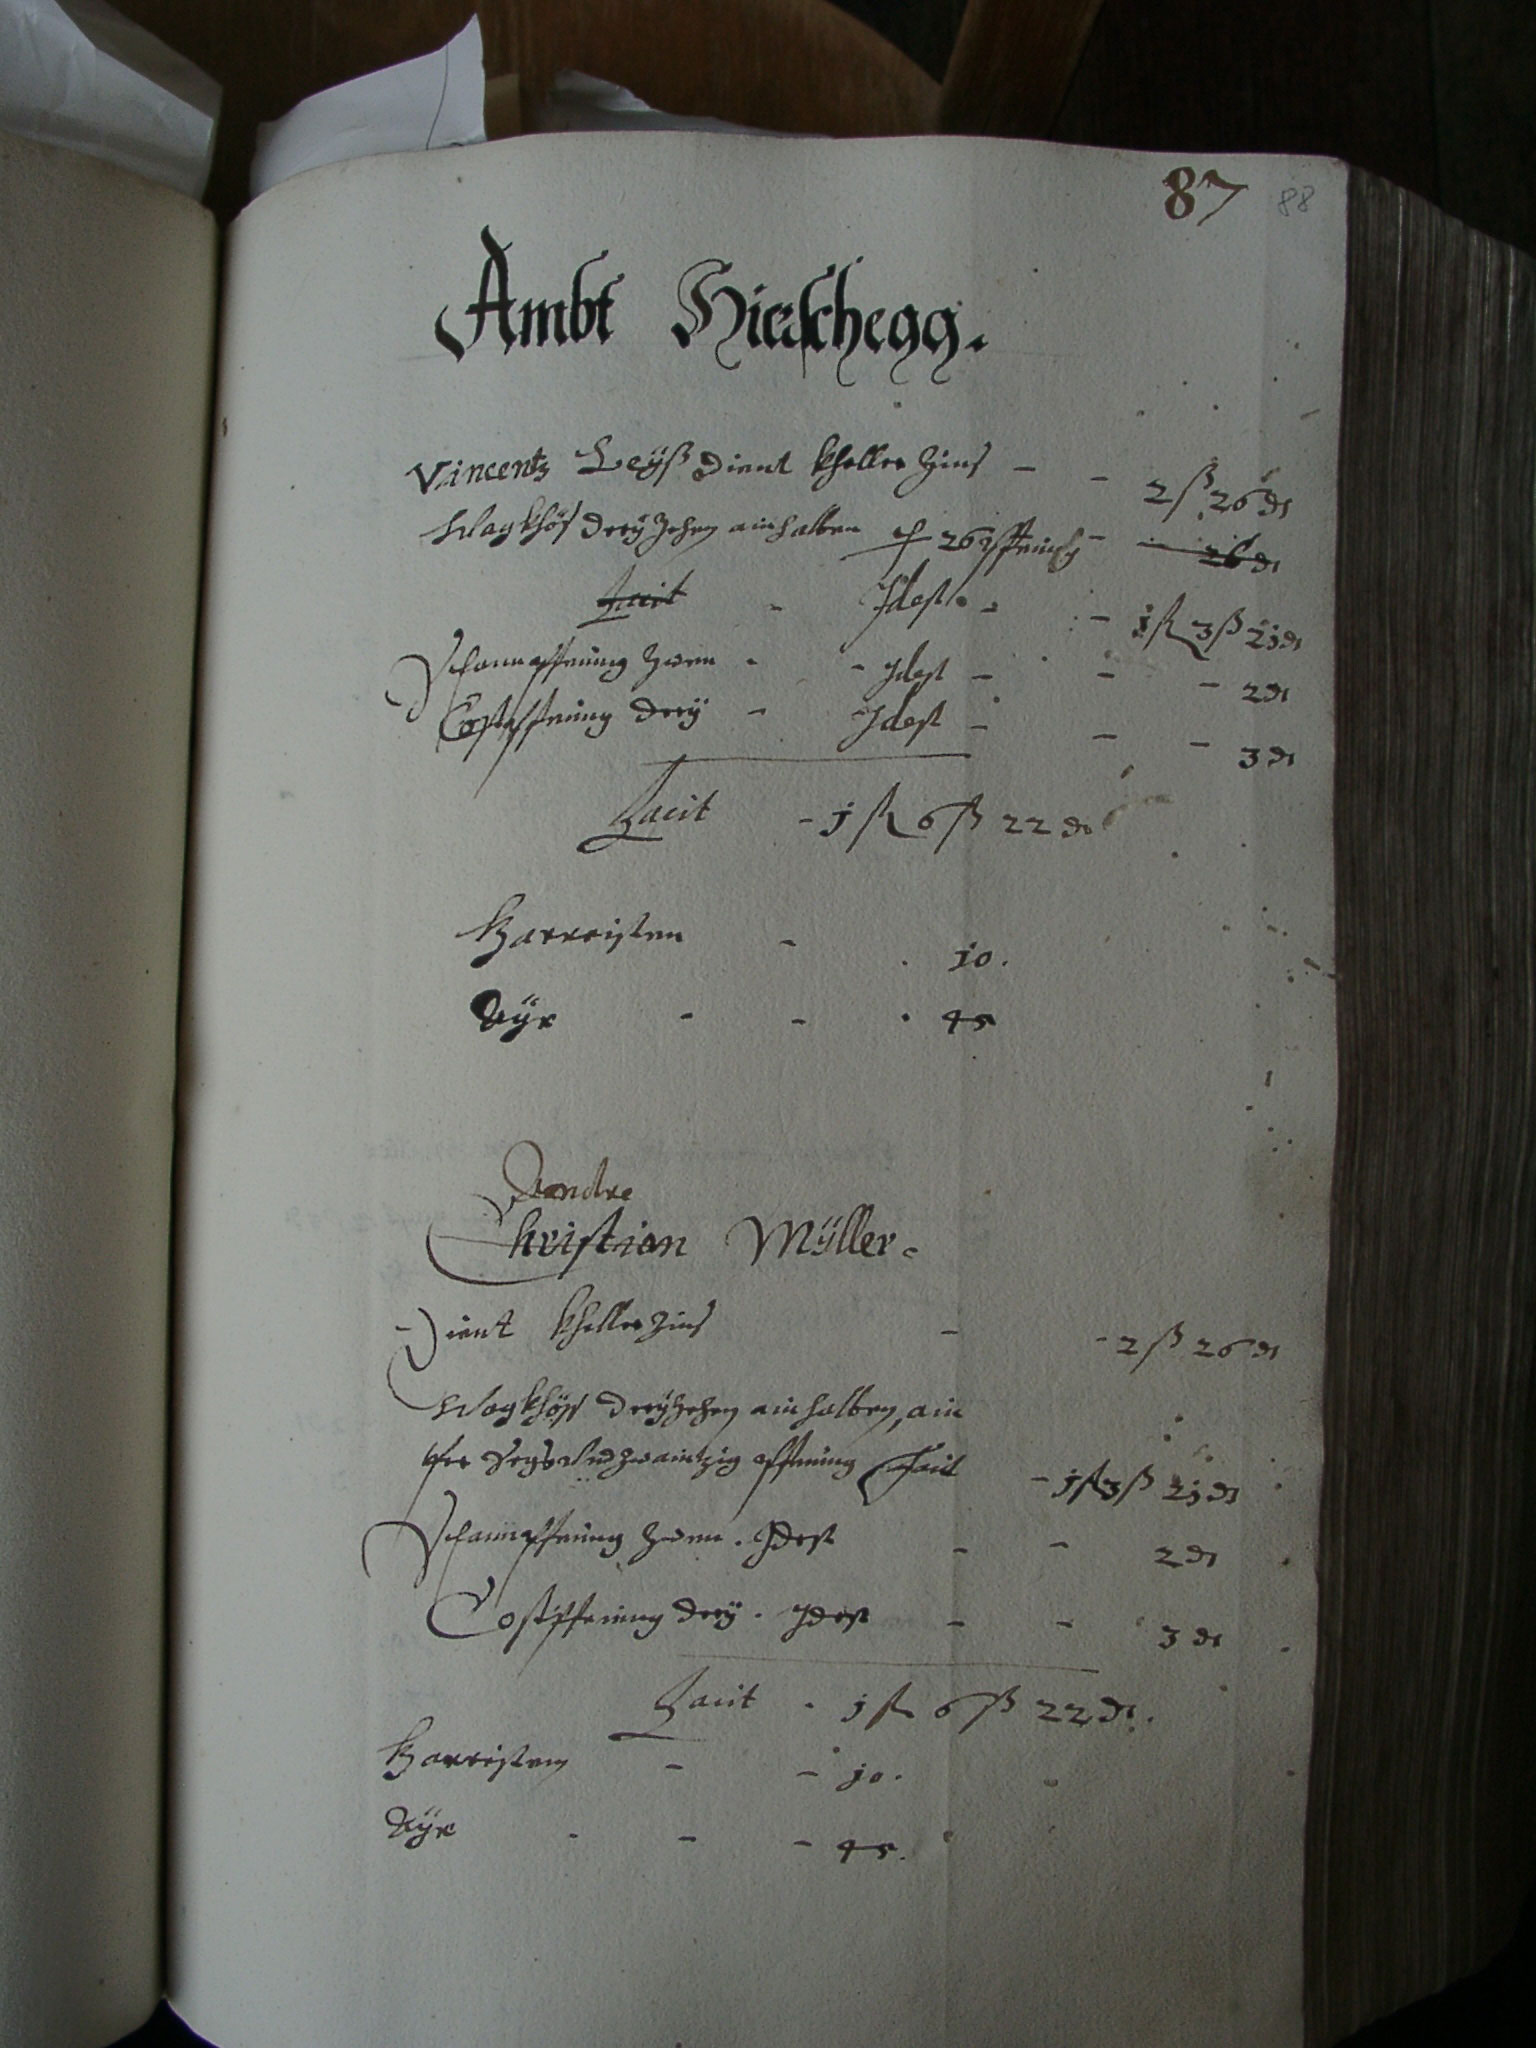 87 88
Ambt Hirschegg.
Vincentz Leyß dient kheller Zins - - 2 ß 26 ₰
Wagkhöß dreyzehen ain halben p 26 pfening - 26 ₰
Facit - Idest - - 1 fl 3 ß 21 ₰
Schannpfening zwen - - Idest - - - 2 ₰
Costpfening drey - Idest - - - 3 ₰
Facit - 1 fl 6 ß 22 ₰
Harreisten - . 10.
Ayr - - . 45
Andre
Christian Müller.
Dient kheller Zins - - 2 ß 26 ₰
Wagkhöß dreyzehen ain halben, ain
per Segsundzwaintzig pfening Facit - 1 fl 3 ß 21 ₰
Schannpfening zwen. Idest - - 2 ₰
Costpfening drey. Idest - - 3 ₰
Facit . 1 fl 6 ß 22 ₰.
Harreisten - - 10.
Ayr - - - 45.